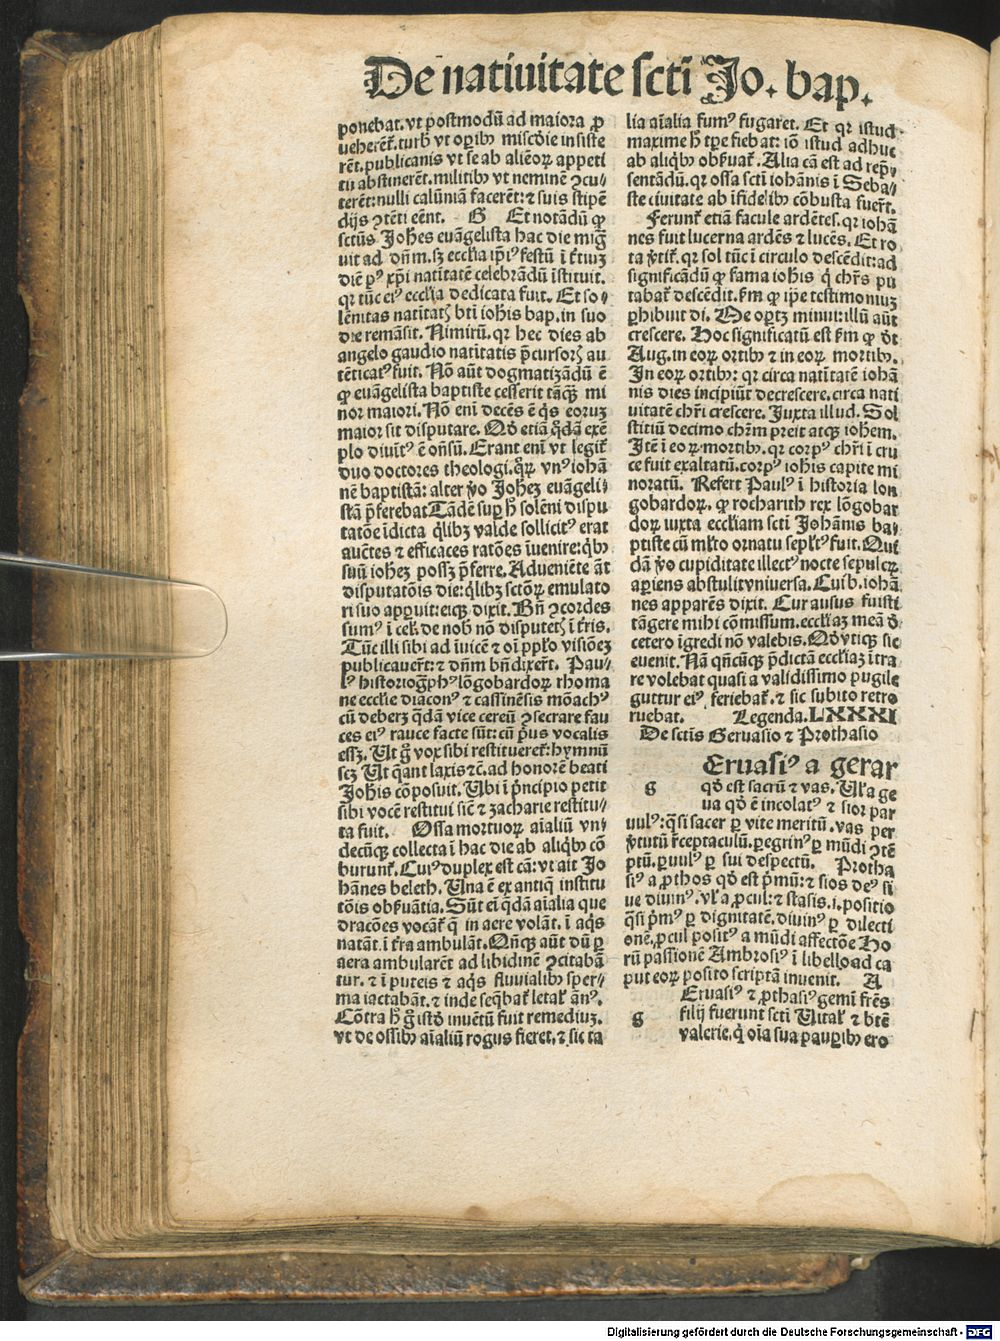 De natiuitate scti Jo. bap.
ponebat. vt postmodū ad maiora ꝓ
ueherēt. turb̄ vt oꝑibꝰ mīscōie insiste
rēt. publicanis vt se ab aliēoꝝ appeti
tu abstinerēt. militibꝰ vt neminē ꝯcu⸗
terēt: nulli calūniā facerēt: ⁊ suis stipē
dijs ꝯtēti eēnt. G Et notādū ꝙ
sctūs Johēs euāgelista hac die mig̃
uit ad dn̄m. sꝫ eccl̓ia ip̄iꝰ festū ī t̓tiuꝫ
diē pꝰ xp̄i natītatē celebrādū īstituit.
qꝛ tūc eiꝰ eccl̓ia dedicata fuit. Et so⸗
lēnitas natītatꝭ bt̄i ioh̄is bap. in suo
die remāsit. Nimirū. qꝛ hec dies ab
angelo gaudio natītatis p̄cursorꝭ au
tēticatꝰ fuit. Nō aūt dogmatizādū ē
ꝙ euāgelista baptiste cesserit tāqꝫ mi
nor maiori. Nō enī decēs ē q̄s eoruꝫ
maior sit disputare. Qd̓ etiā q̄dā exē
plo diuītꝰ ē on̄sū. Erant enī vt legit̓
duo doctores theologi. q̄ꝝ vnꝰ iohā
nē baptistā: alter ꝟo Johēꝫ euāgeli⸗
stā p̄ferebat Tādē suꝑ h̄ solēni dispu
tatōe īdicta q̄libꝫ valde sollicitꝰ erat
auctes ⁊ efficaces ratōes īuenire: q̄bꝰ
suū iohēꝫ possꝫ p̄ferre. Adueniēte āt
disputatōis die: q̄libꝫ sctōꝝ emulato
ri suo apꝑuit: eiqꝫ dixit. Bn̄ ꝯcordes
sumꝰ ī cel̓. de nob̄ nō disputetꝭ ī t̓ris.
Tūc illi sibi ad īuicē ⁊ oī pplo visiōeꝫ
publicauer̄t: ⁊ dn̄m bn̄dixer̄t. Pau⸗
lꝰ historiog̃phꝰ lōgobardoꝝ rhoma
ne ecclie diaconꝰ ⁊ cassinēsis mōachꝰ
cū deberꝫ q̄dā vice cereū ꝯsecrare fau
ces eiꝰ rauce facte sūt: cū p̄us vocalis
essꝫ. Ut g̊ vox sibi restitueret̓: hymnū
scꝫ Ut q̄ant laxis ⁊c̄. ad honorē beati
Joh̄is cōposuit. Ubi ī p̄ncipio petit
sibi vocē restitui sic̄ ⁊ zacharie restitu⸗
ta fuit. Ossa mortuoꝝ aīaliū vn̄
decūqꝫ collecta ī hac die ab aliq̄bꝰ cō
burunt̓. Cuiꝰ duplex est cā: vt ait Jo
hānes beleth. Una ē ex antiq̄ institu
tōis obẜuātia. Sūt eī q̄dā aīalia que
dracōes vocāt̓ q̄ in aere volāt. ī aq̄s
natāt. ī t̓ra ambulāt. Qn̄qꝫ aūt dū ꝑ
aera ambularēt ad libidinē ꝯcitabā
tur. ⁊ ī puteis ⁊ aq̄s fluuialibꝰ sper⸗
ma iactabāt. ⁊ inde seq̄bat̓ letal̓ ānꝰ.
Cōtra h̄ g̊ istd̓ inuētū fuit remediuꝫ.
vt de ossibꝰ aīaliū rogus fieret. ⁊ sic ta
lia aīalia fumꝰ fugaret. Et qꝛ istud
maxime h̄ tꝑe fiebat: iō istud adhuc
ab aliq̄bꝰ obẜuat̓. Alia cā est ad rep̄⸗
sentādū. qꝛ ossa scti iohānis ī Seba⸗
ste ciuitate ab īfidelibꝰ cōbusta fuer̄t.
Ferunt̓ etiā facule ardētes. qꝛ iohā
nes fuit lucerna ardēs ⁊ lucēs. Et ro
ta ꝟtit̓. qꝛ sol tūc ī circulo descēdit: ad
significādū ꝙ fama ioh̄is q̄ chr̄s pu
tabat̓ descēdit. ẜm ꝙ ip̄e testimoniuꝫ
ꝑhibuit di. Me oꝑtꝫ minui: illū aūt
crescere. Hoc significatū est ẜm ꝙ d̓t
Aug. in eoꝝ ortibꝰ ⁊ in eoꝝ mortibꝰ.
In eoꝝ ortibꝰ: qꝛ circa natītatē iohā
nis dies incipiūt decrescere. circa nati
uitatē chr̄i crescere. Juxta illud. Sol
stitiū decimo chr̄m preit atqꝫ iohem.
Jtē ī eoꝝ mortibꝰ. qꝛ corpꝰ chr̄i ī cru
ce fuit exaltatū. corpꝰ ioh̄is capite mi
noratū. Refert Paulꝰ ī historia lon
gobardoꝝ. ꝙ rocharith rex lōgobar
doꝝ iuxta eccl̓iam scti Johānis ba⸗
ptiste cū ml̓to ornatu sepl̓tꝰ fuit. Qui
dā ꝟo cupiditate illectꝰ nocte sepulcꝝ
aꝑiens abstulit vniuersa. Cui b. iohā
nes apparēs dixit. Cur ausus fuisti
tāgere mihi cōmissum. eccl̓iaꝫ meā d̓
cetero īgredi nō valebis. Qd̓ vtiqꝫ sic
euenit. Nā qn̄cūqꝫ p̄dictā eccl̓iaꝫ ītra
re volebat quasi a validissimo pugile
guttur eiꝰ feriebat̓. ⁊ sic subito retro
ruebat. Legenda. LXXXI
De sctis Geruasio ⁊ Prothasio
g Eruasiꝰ a gerar
qd̓ est sacrū ⁊ vas. Ul̓ a ge
ua qd̓ ē incolatꝰ ⁊ sior par
uulꝰ: q̄si sacer ꝑ vite meritū. vas per
ꝟtutū r̄ceptaculū. ꝑegrinꝰ ꝑ mūdi ꝯtē
ptū. ꝑuulꝰ ꝑ sui despectū. Protha
siꝰ a ꝓthos qd̓ est p̄mū: ⁊ sios deꝰ si
ue diuinꝰ. vl̓ a ꝓcul: ⁊ stasis. i. positio
q̄si p̄mꝰ ꝑ dignitatē. diuinꝰ ꝑ dilecti
onē. ꝓcul positꝰ a mūdi affectōe Ho
rū passionē Ambrosiꝰ ī libello ad ca
put eoꝝ posito scriptā inuenit. A
g Eruasiꝰ ⁊ ꝓthasiꝰ gemī fr̄es
filij fuerunt scti Uital̓ ⁊ bt̄e
valerie. q̄ oīa sua pauꝑibꝰ ero
Digitalisierung gefördert durch die Deutsche Forschungsgemeinschaft - DFG